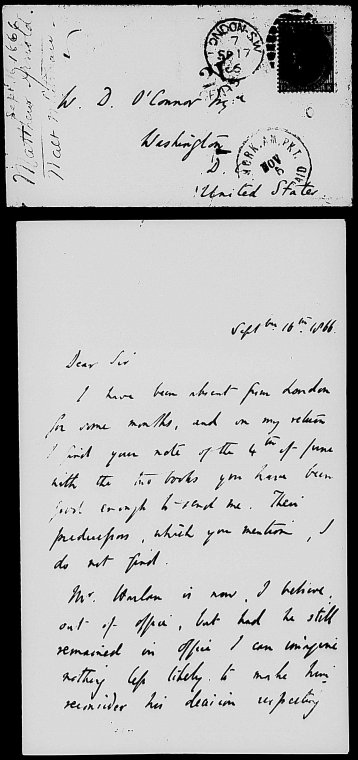 Sept 16, 1866.
Matthew Arnold.
Walt Whitman.
LONDON-S.W
7
SP 17
66
W. D. O'Connor Esq
Washington
D.
United States
YORK. AM. PKT.
NOV
6
PAID
Septbr 16th. 1866.
Dear Sir
I have been absent from London
for some months, and on my return
I find your note of the 4th of June
with the two books you have been
good enough to send me. Their
predecessors, which you mention, I
do not find.
Mr. Harlan is now, I believe,
out of office, but had he still
remained in office I can imagine
nothing less likely to make him
reconsider his decision respecting